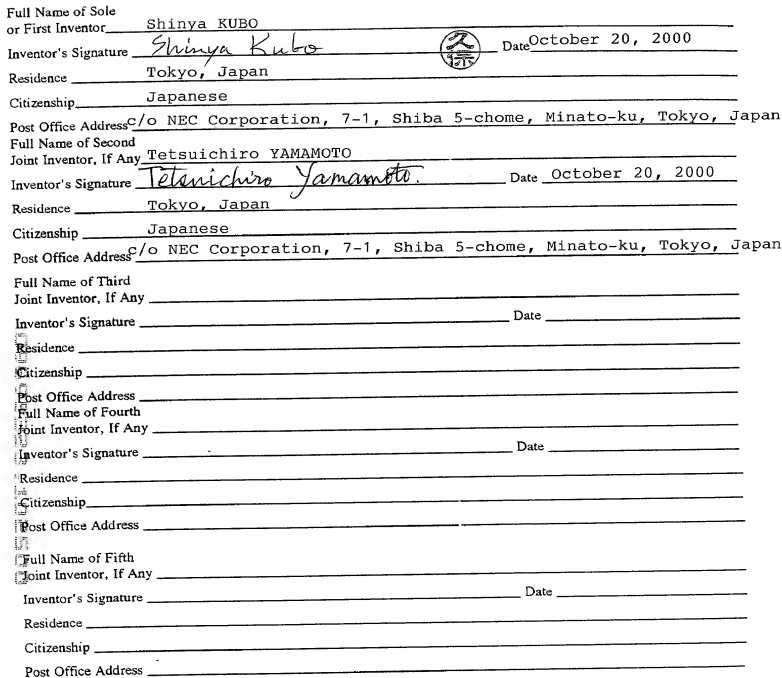 Full Name of Sole
or First Inventor Shinya KUBO
Inventor's Signature Shinya Kubo 久保 Date October 20, 2000
Residence Tokyo, Japan
Citizenship Japanese
Post Office Address c/o NEC Corporation, 7-1, Shiba 5-chome, Minato-ku, Tokyo, Japan
Full Name of Second
Joint Inventor, If Any Tetsuichiro YAMAMOTO
Inventor's Signature Tetsuichiro Yamamoto. Date October 20, 2000
Residence Tokyo, Japan
Citizenship Japanese
Post Office Address c/o NEC Corporation, 7-1, Shiba 5-chome, Minato-ku, Tokyo, Japan
Full Name of Third
Joint Inventor, If Any
Inventor's Signature Date
Residence
Citizenship
Post Office Address
Full Name of Fourth
Joint Inventor, If Any
Inventor's Signature Date
Residence
Citizenship
Post Office Address
Full Name of Fifth
Joint Inventor, If Any
Inventor's Signature Date
Residence
Citizenship
Post Office Address